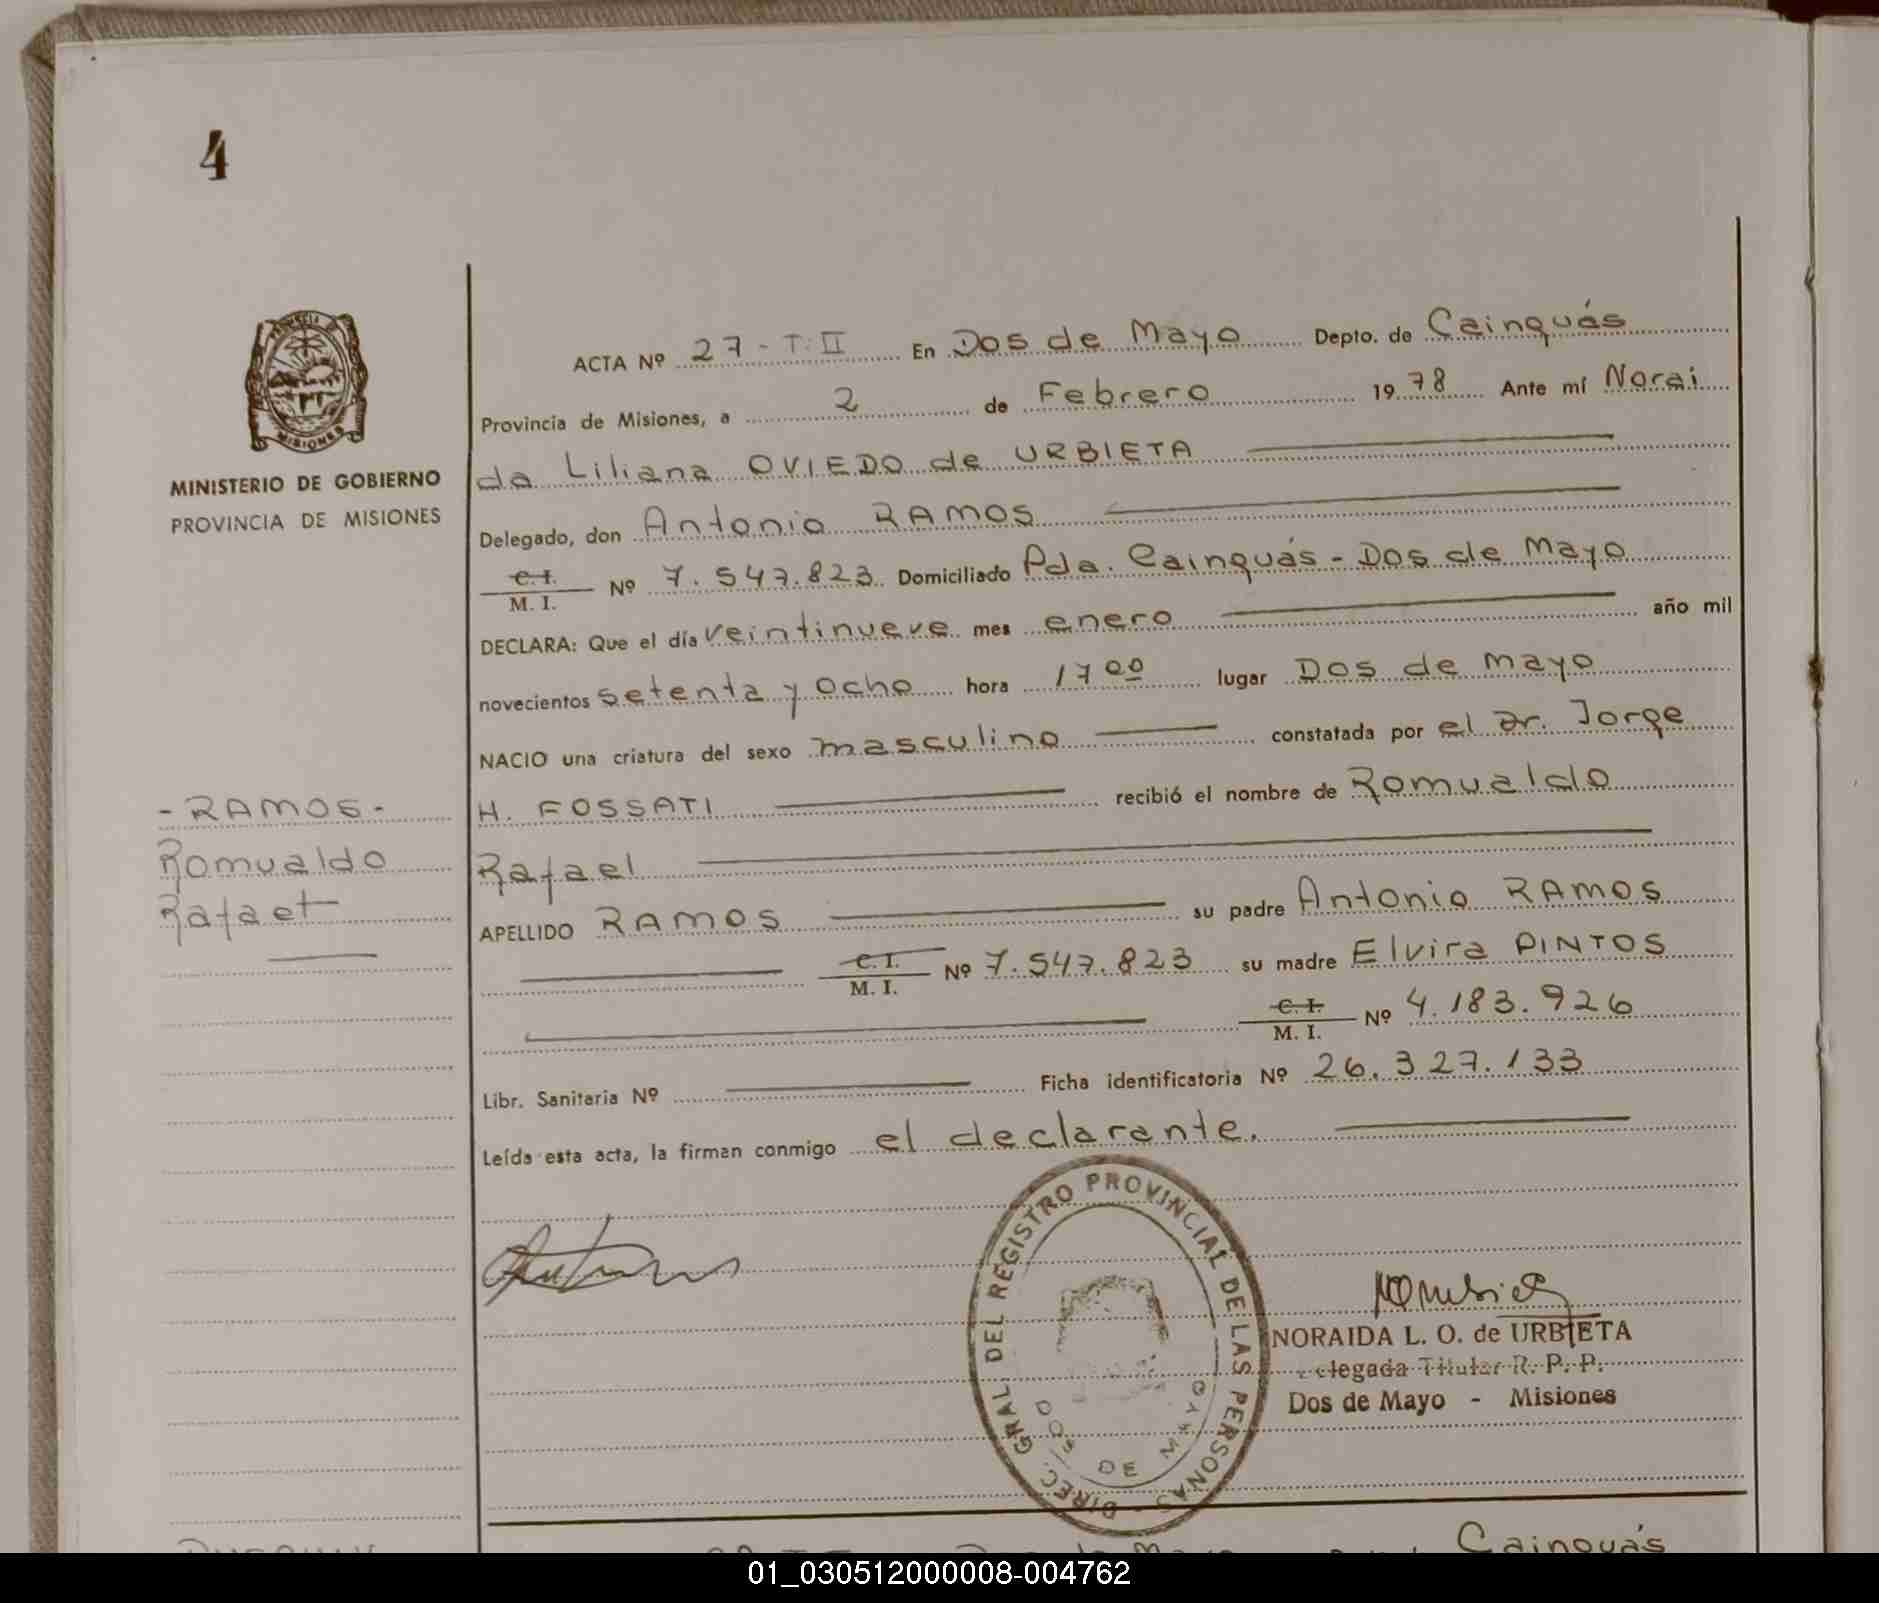 4
PROVINCIA DE
MISIONES
MINISTERIO DE GOBIERNO
PROVINCIA DE MISIONES
- RAMOS -
Romualdo
Rafael
ACTA Nº 27 - T: II En Dos de Mayo Depto. de Cainguás
Provincia de Misiones, a 2 de Febrero 19 78 Ante mí Norai
da Liliana OVIEDO de URBIETA
Delegado, don Antonio RAMOS
C. I.
M. I. Nº 7.547.823 Domiciliado Pda. Cainguás - Dos de Mayo
DECLARA: Que el día veintinueve mes enero año mil
novecientos setenta y ocho hora 17 00 lugar Dos de Mayo
NACIO una criatura del sexo masculino constatada por el Dr. Jorge
H. FOSSATI recibió el nombre de Romualdo
Rafael
APELLIDO RAMOS su padre Antonio RAMOS
C. I.
M. I. Nº 7.547.823 su madre Elvira PINTOS
C. I.
M. I. Nº 4.183.926
Libr. Sanitaria Nº Ficha identificatoria Nº 26.327.133
Leída esta acta, la firman conmigo el declarante.
DIREC. GRAL. DEL REGISTRO PROVINCIAL DE LAS PERSONAS
DOS DE MAYO
NORAIDA L. O. de URBIETA
Delegada Titular R. P. P.
Dos de Mayo - Misiones
Cainguás
01_030512000008-004762